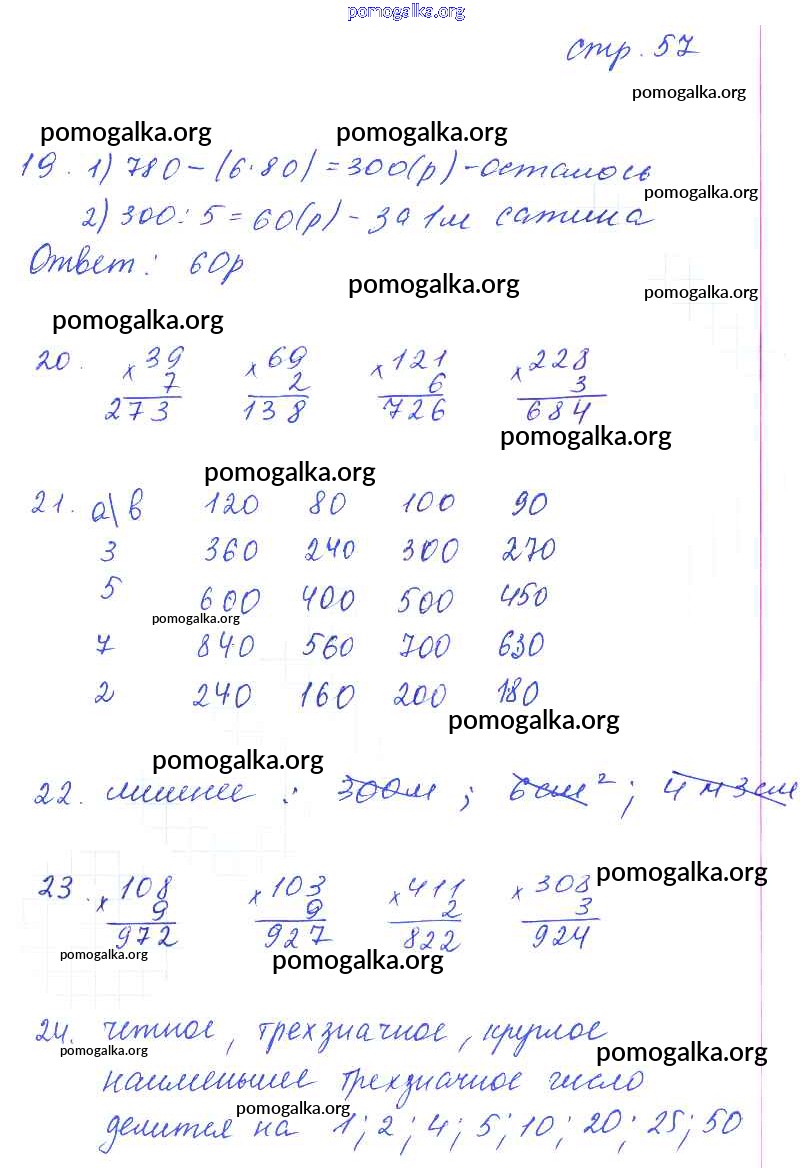 pomogalka.org
стр. 57
pomogalka.org
pomogalka.org pomogalka.org
19. 1) 780-(6·80)=300(р)-осталось
pomogalka.org
2) 300:5=60(р)-за 1м сатина
Ответ: 60р
pomogalka.org pomogalka.org
pomogalka.org
20. x 39 x 69 x 121 x 228
7 2 6 3
273 138 726 684
pomogalka.org
pomogalka.org
21. а\в 120 80 100 90
3 360 240 300 270
5 600 400 500 450
pomogalka.org
7 840 560 700 630
2 240 160 200 180
pomogalka.org
pomogalka.org
22. лишнее : 300м ; 6см² ; 4м3см
pomogalka.org
23. x 108 x 103 x 411 x 308
9 9 2 3
972 927 822 924
pomogalka.org pomogalka.org
24. четное, трехзначное, круглое
pomogalka.org pomogalka.org
наименьшее трехзначное число
pomogalka.org
делится на 1; 2; 4; 5; 10; 20; 25; 50